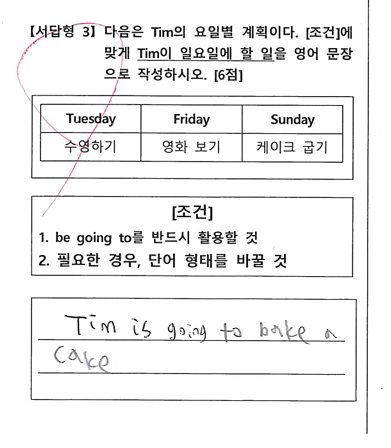 【서답형 3】 다음은 Tim의 요일별 계획이다. [조건]에
맞게 Tim이 일요일에 할 일을 영어 문장
으로 작성하시오. [6점]
Tuesday Friday Sunday
수영하기 영화 보기 케이크 굽기
[조건]
1. be going to를 반드시 활용할 것
2. 필요한 경우, 단어 형태를 바꿀 것
Tim is going to bake a
cake